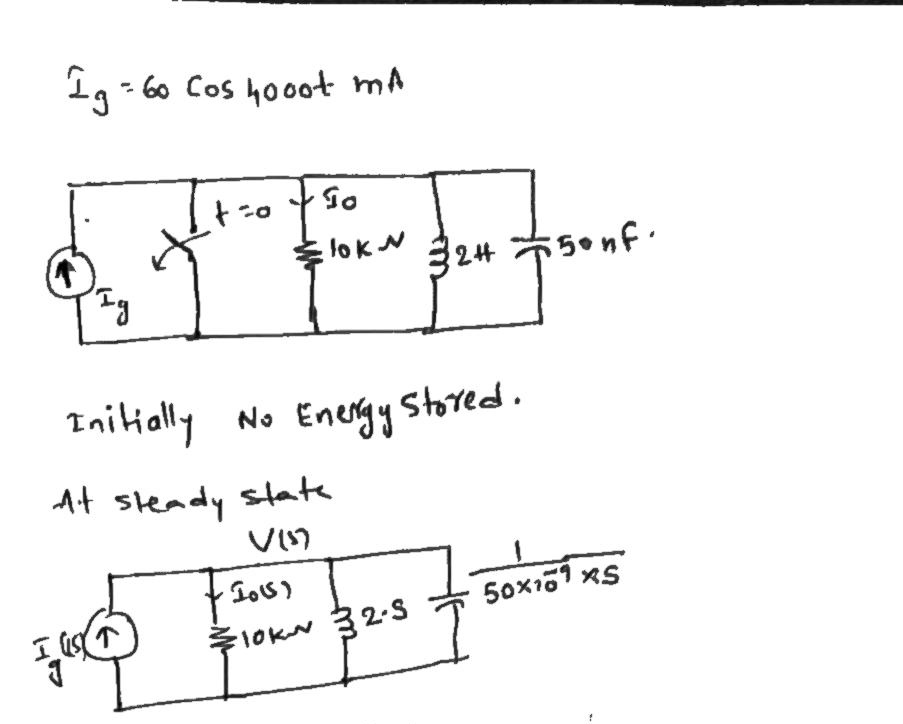 Ig = 60 Cos 4000t mA
t=0
Io
10K
2H
50nf.
Ig
Initially No Energy Stored.
At steady state
V(s)
1
50×10⁻⁹ ×S
Io(s)
10K
2·S
Ig(s)